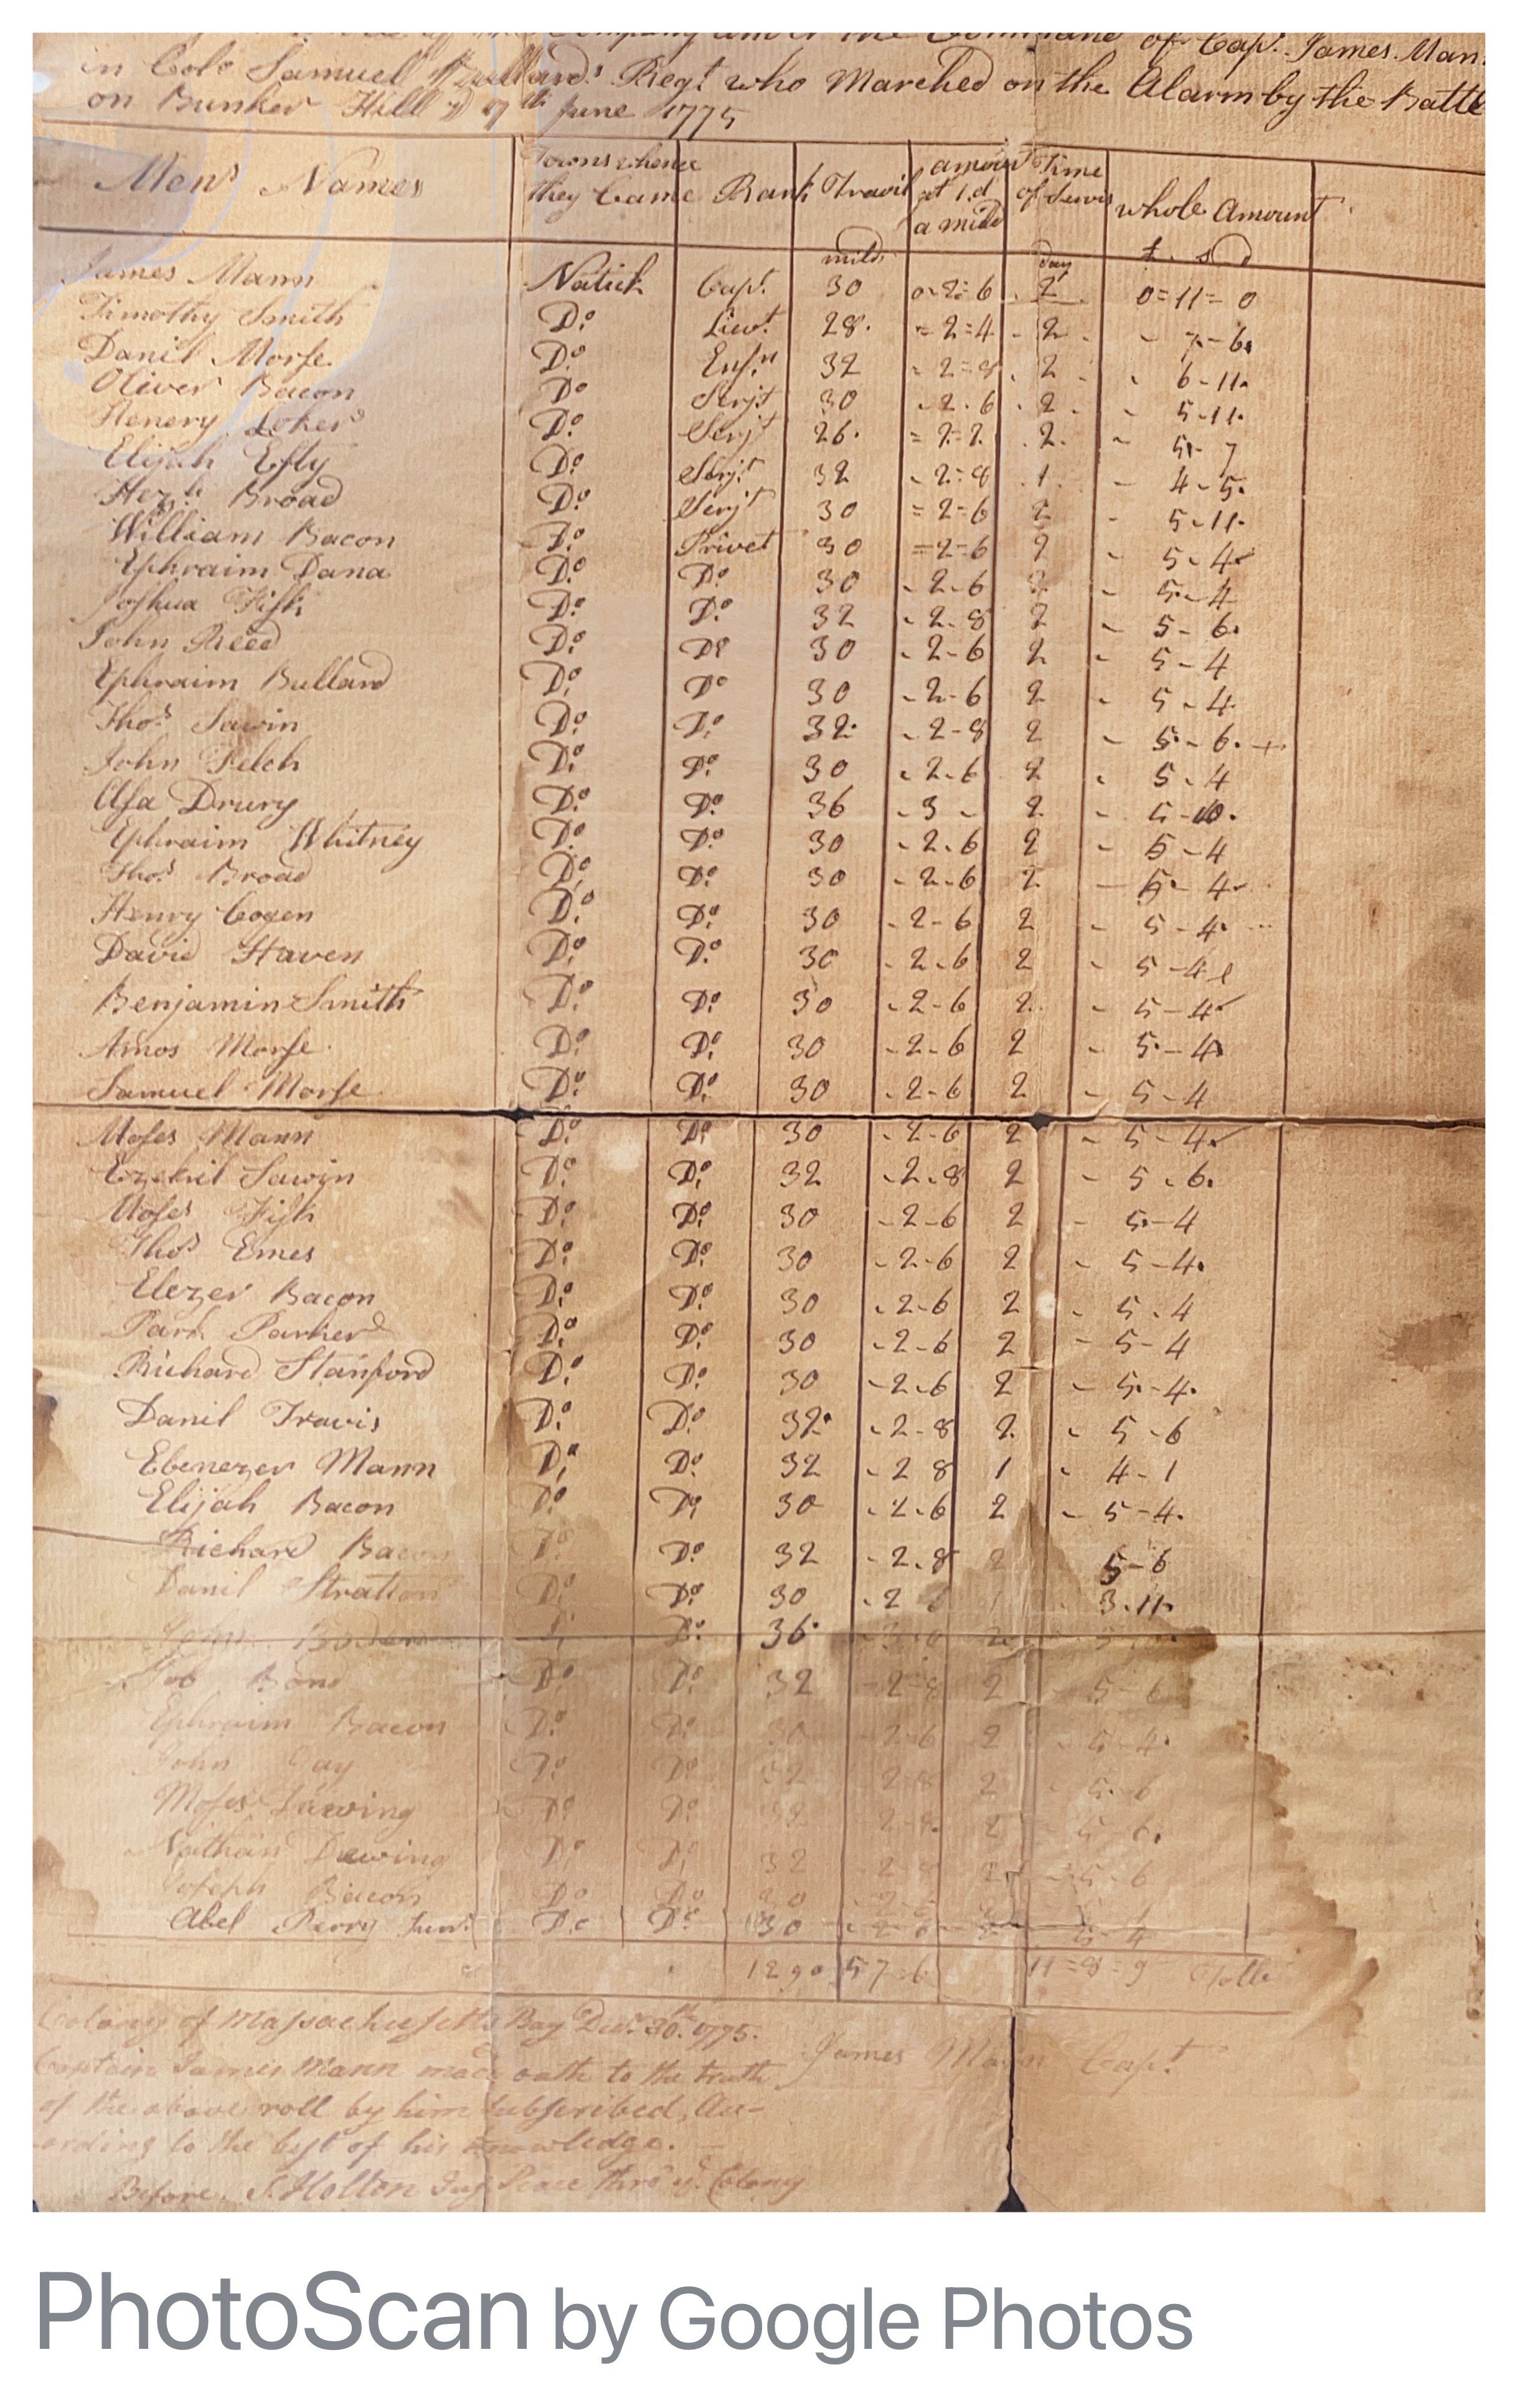 Company under the Command of Cap.t James Man
in Colo Samuel Bullard's Reg.t who Marched on the Alarm by the Battle
on Bunker Hill 17th June 1775
Men's Names Towns whence they Came Rank Travil amount at 1.d a mile Time of Servis whole Amount
mils day £ s D
James Mann Natick Cap.t 30 0-2=6 2 0=11=0
Timothy Smith D.o Lieu.t 28 -2=4 2 - 7-6
Danil Morse D.o Ens.n 32 -2=8 2 - 6-11
Oliver Bacon D.o Serj.t 30 -2-6 2 - 5-11
Henery Loker D.o Serj.t 26 =2=2 2 - 5-7
Elijah Esty D.o Serj.t 32 -2=8 1 - 4-5
Hez.h Broad D.o Serj.t 30 =2=6 2 - 5-11
William Bacon D.o Privet 30 =2=6 2 - 5-4
Ephraim Dana D.o D.o 30 -2-6 2 - 5-4
Joshua Fisk D.o D.o 32 -2-8 2 - 5-6
John Reed D.o D.o 30 -2-6 2 - 5-4
Ephraim Bullard D.o D.o 30 -2-6 2 - 5-4
Tho.s Sawin D.o D.o 32 -2-8 2 - 5-6 +
John Felch D.o D.o 30 -2-6 2 - 5-4
Asa Drury D.o D.o 36 -3- 2 - 5-10
Ephraim Whitney D.o D.o 30 -2-6 2 - 5-4
Tho.s Broad D.o D.o 30 -2-6 2 - 5-4
Henry Cogen D.o D.o 30 -2-6 2 - 5-4
David Haven D.o D.o 30 -2-6 2 - 5-4
Benjamin Smith D.o D.o 30 -2-6 2 - 5-4
Amos Morse D.o D.o 30 -2-6 2 - 5-4
Samuel Morse D.o D.o 30 -2-6 2 - 5-4
Moses Mann D.o D.o 30 -2-6 2 - 5-4
Ezekil Sawin D.o D.o 32 -2-8 2 - 5-6
Moses Fisk D.o D.o 30 -2-6 2 - 5-4
Tho.s Emes D.o D.o 30 -2-6 2 - 5-4
Elezer Bacon D.o D.o 30 -2-6 2 - 5-4
Park Parker D.o D.o 30 -2-6 2 - 5-4
Richard Stanford D.o D.o 30 -2-6 2 - 5-4
Danil Travis D.o D.o 32 -2-8 2 - 5-6
Ebenezer Mann D.o D.o 32 -2 8 1 - 4-1
Elijah Bacon D.o D.o 30 -2-6 2 - 5-4
Richard Bacon D.o D.o 32 -2-8 2 5-6
Danil Stratton D.o D.o 30 -2 6 1 3-11
John Boden D.o D.o 36 -3-0 2 - 5-10
Job Bond D.o D.o 32 -2-8 2 - 5-6
Ephraim Bacon D.o D.o 30 -2-6 2 - 5-4
John Gay D.o D.o 32 2-8 2 - 5-6
Moses Dewing D.o D.o 32 2-8 2 - 5-6
Nathan Dewing D.o D.o 32 2-8 2 - 5-6
Joseph Bacon D.o D.o 30
Abel Perry Jun.r D.o D.o 30 -2-6 5-4
1290 5 7 6 11=8=9 Totle
Colony of Massachusetts Bay Dec.r 30th 1775.
James Mann Cap.t
Captain James Mann made oath to the truth
of the above roll by him subscribed, Ac-
cording to the best of his knowledge.
Before S. Holten Jus Peace thro' y.e Colony
PhotoScan by Google Photos